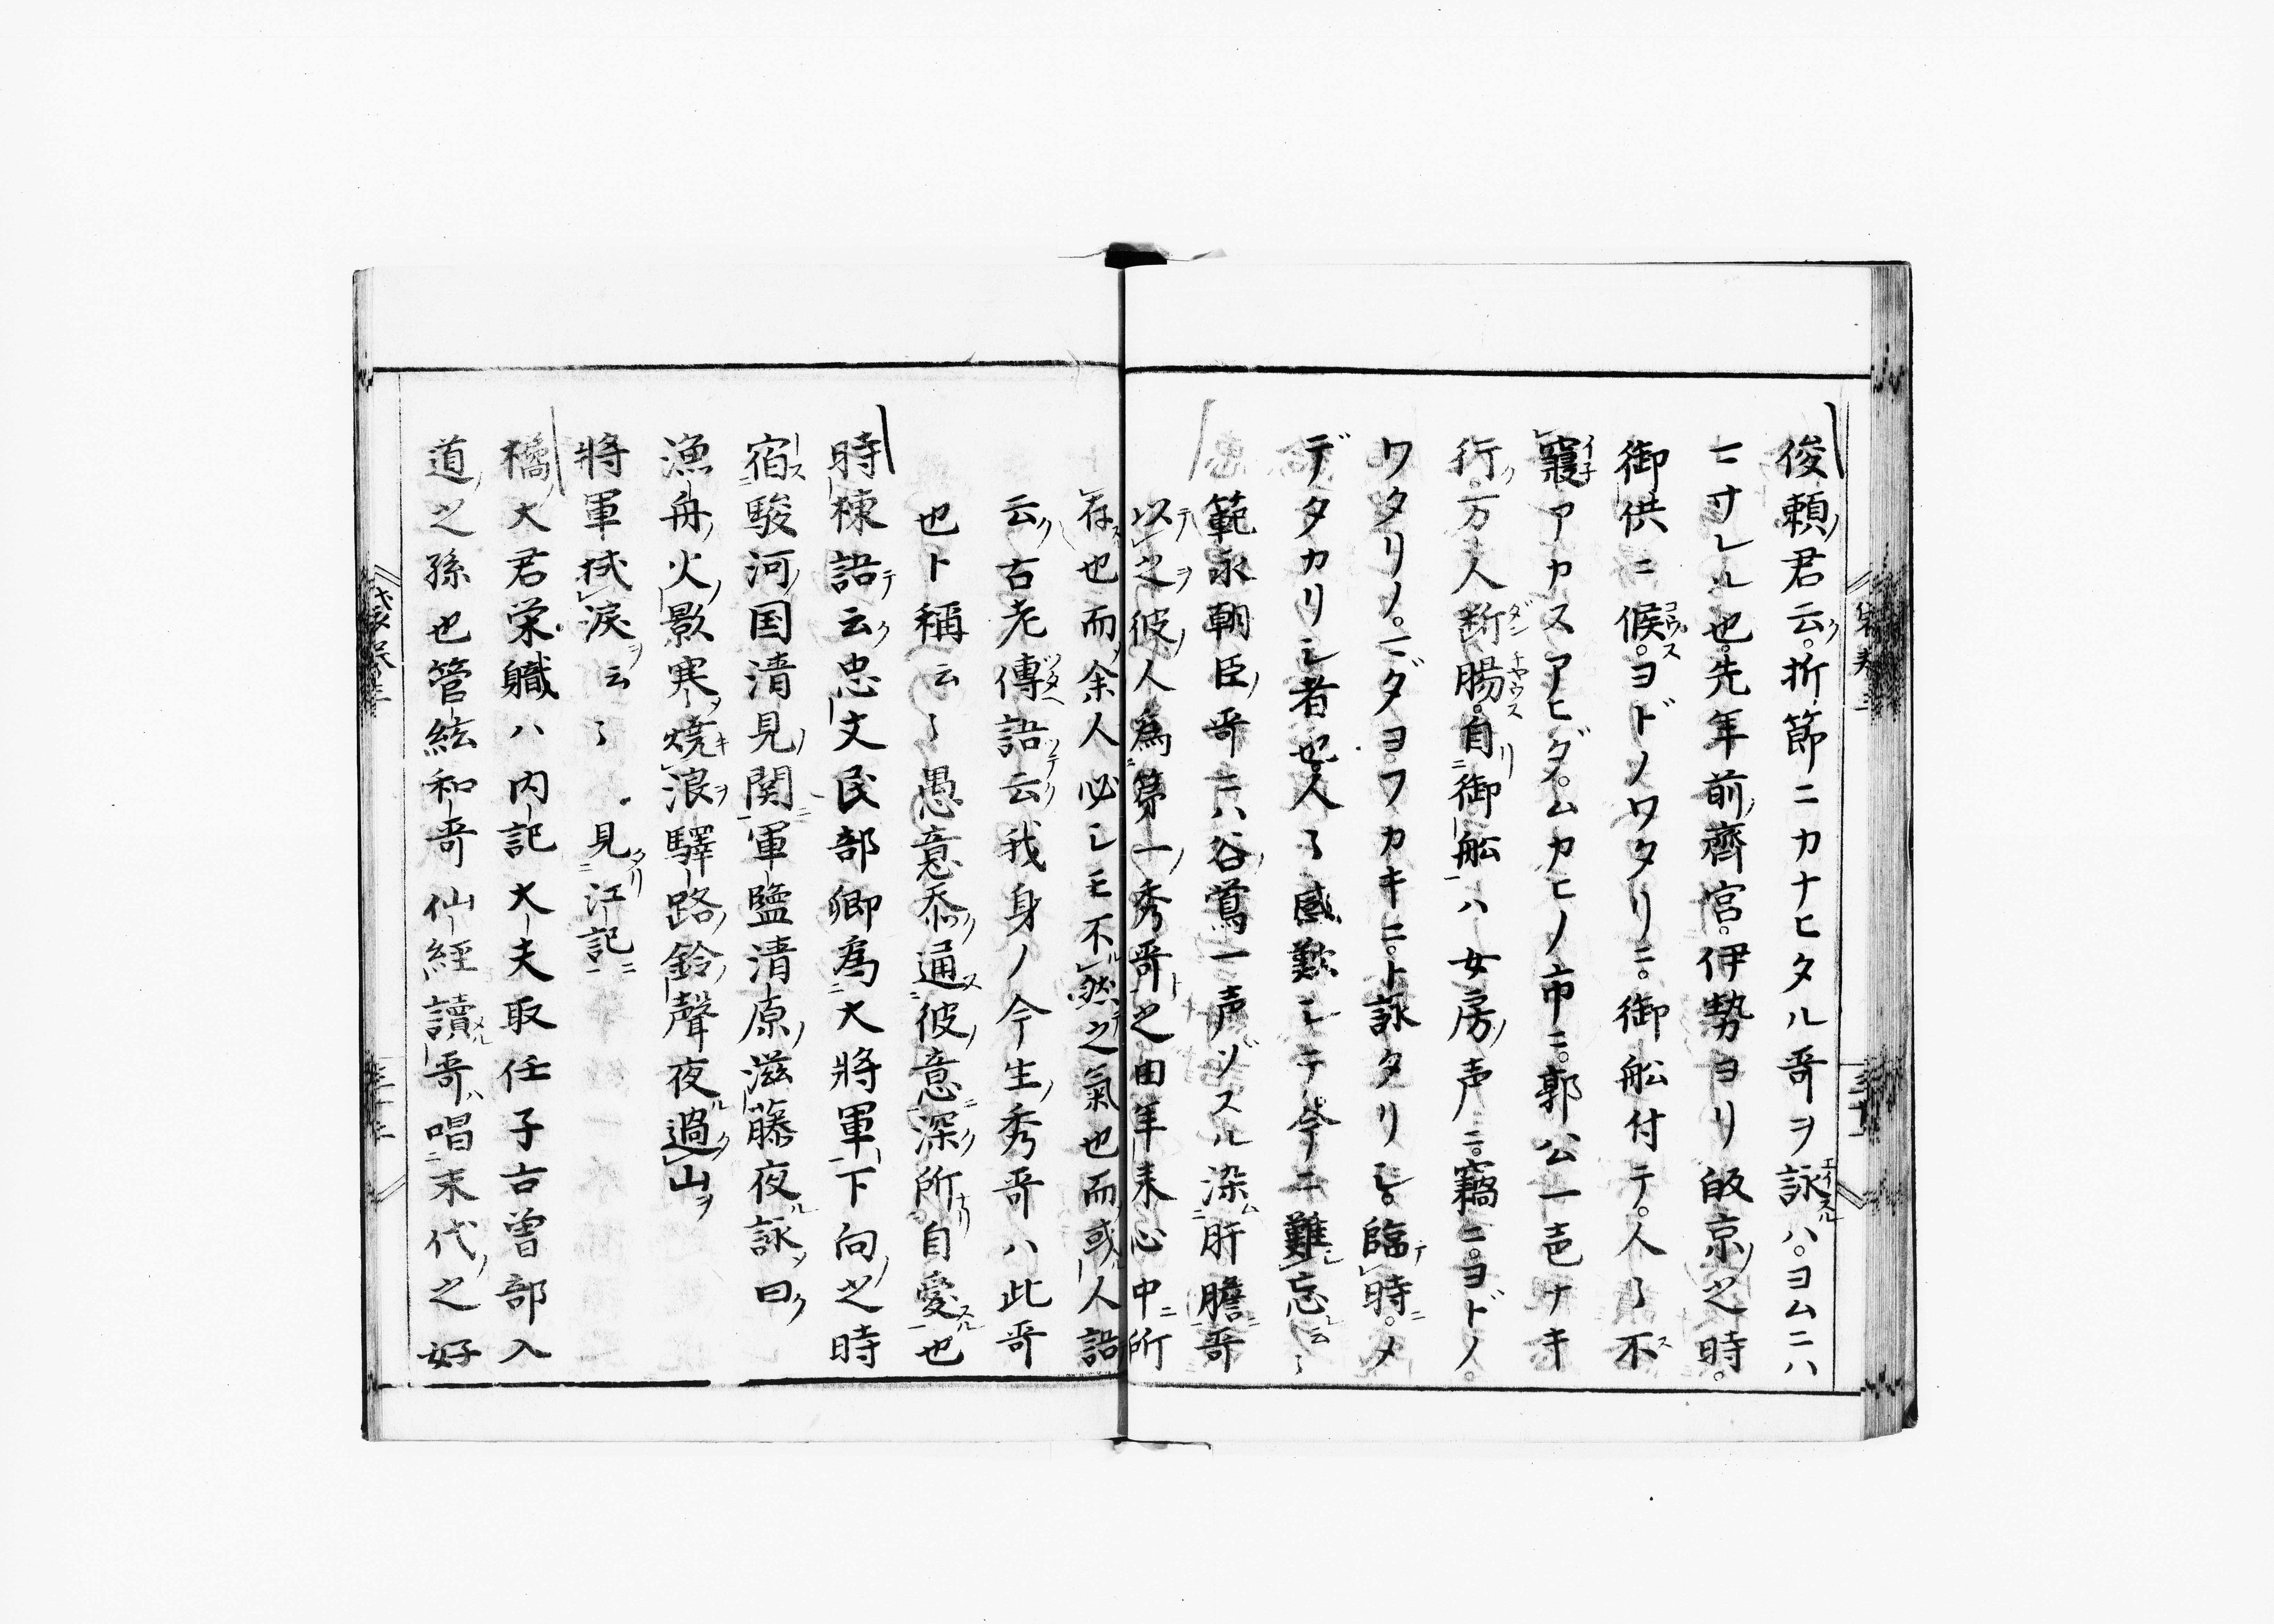 俊頼君云。折節ニカナヒタル哥ヲ詠ハ。ヨムニハ
ニサレル也。先年前齊宮。伊勢ヨリ皈京之時。
御供ニ候。ヨドノワタリニ。御舩付テ。人〻不
寢アカスアヒダ。ムカヒノ市ニ。郭公一声ナキ
行。万人断腸。自御舩ハ女房声ニ。竊ニ。ヨドノ。
ワタリノ。ニダヨ。フカキニ。ト詠タリシ。臨時。メ
デタカリシ者也。人〻感歎シテ今ニ難忘云〻
範永朝臣哥ニハ谷鶯一声ゾスル染肝膽哥
以之彼人為第一秀哥之由年来心中所
存也而余人必シモ不然之氣也而或人語
云古老傳語云我身ノ今生秀哥ハ此哥
也ト稱云〻愚意忝通彼意深所自愛也
時棟語云忠文民部卿為大將軍下向之時
宿駿河国清見関軍監清原滋藤夜詠曰
漁舟火影寒燒浪驛路鈴聲夜過山
將軍拭淚云〻見江記
橘大君栄職ハ内記大夫取任子古曾部入
道之孫也管絃和哥仙經讀哥唱末代之好